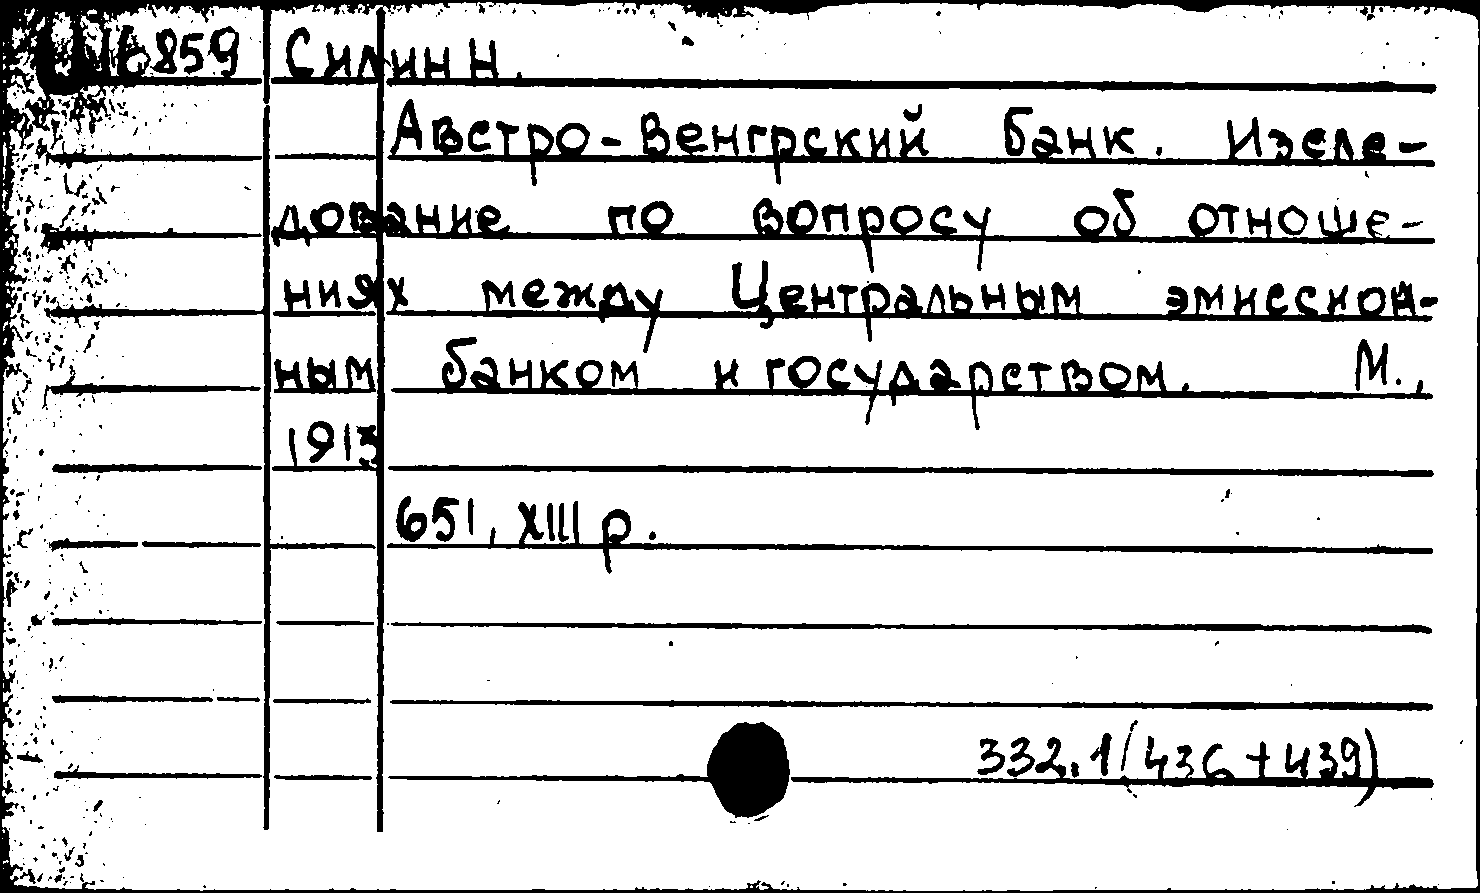 859 Силин Н.
Австро-Венгрский банк. Изсле-
дование по вопросу об отноше-
ниях между Центральным эмиссион-
ным банком и государством. М.,
1913
651, XIII р.
332.1(436+439)